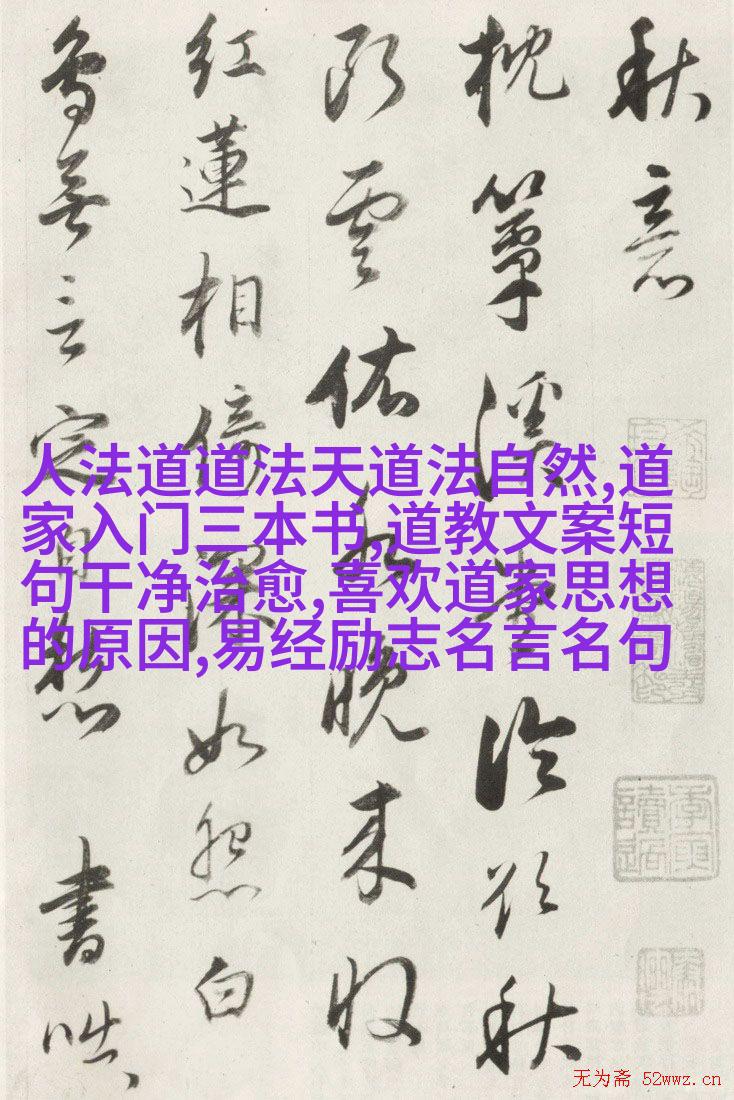 秋意
枕簟溪堂冷欲秋
断雲依水晚来收
红蓮相倚深如怨白
鸟無言定自愁 書
人法道道法天道法自然,道
家入门三本书,道教文案短
句干净治愈,喜欢道家思想
的原因,易经励志名言名句
无为斋 52wwz.cn